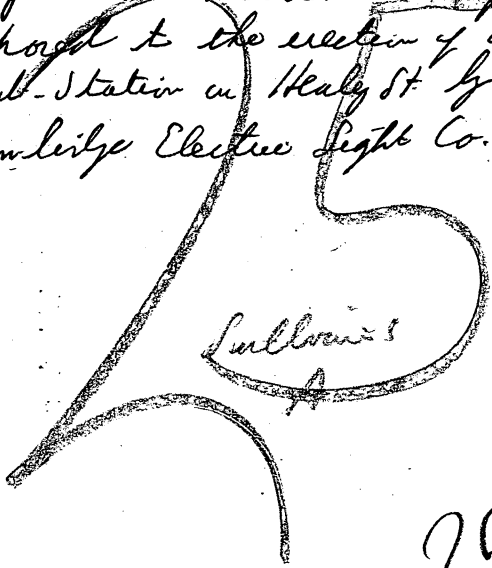 to the erection of
Sub-Station on Healy St. by
Cambridge Electric Light Co.
25
Sullivan's
A